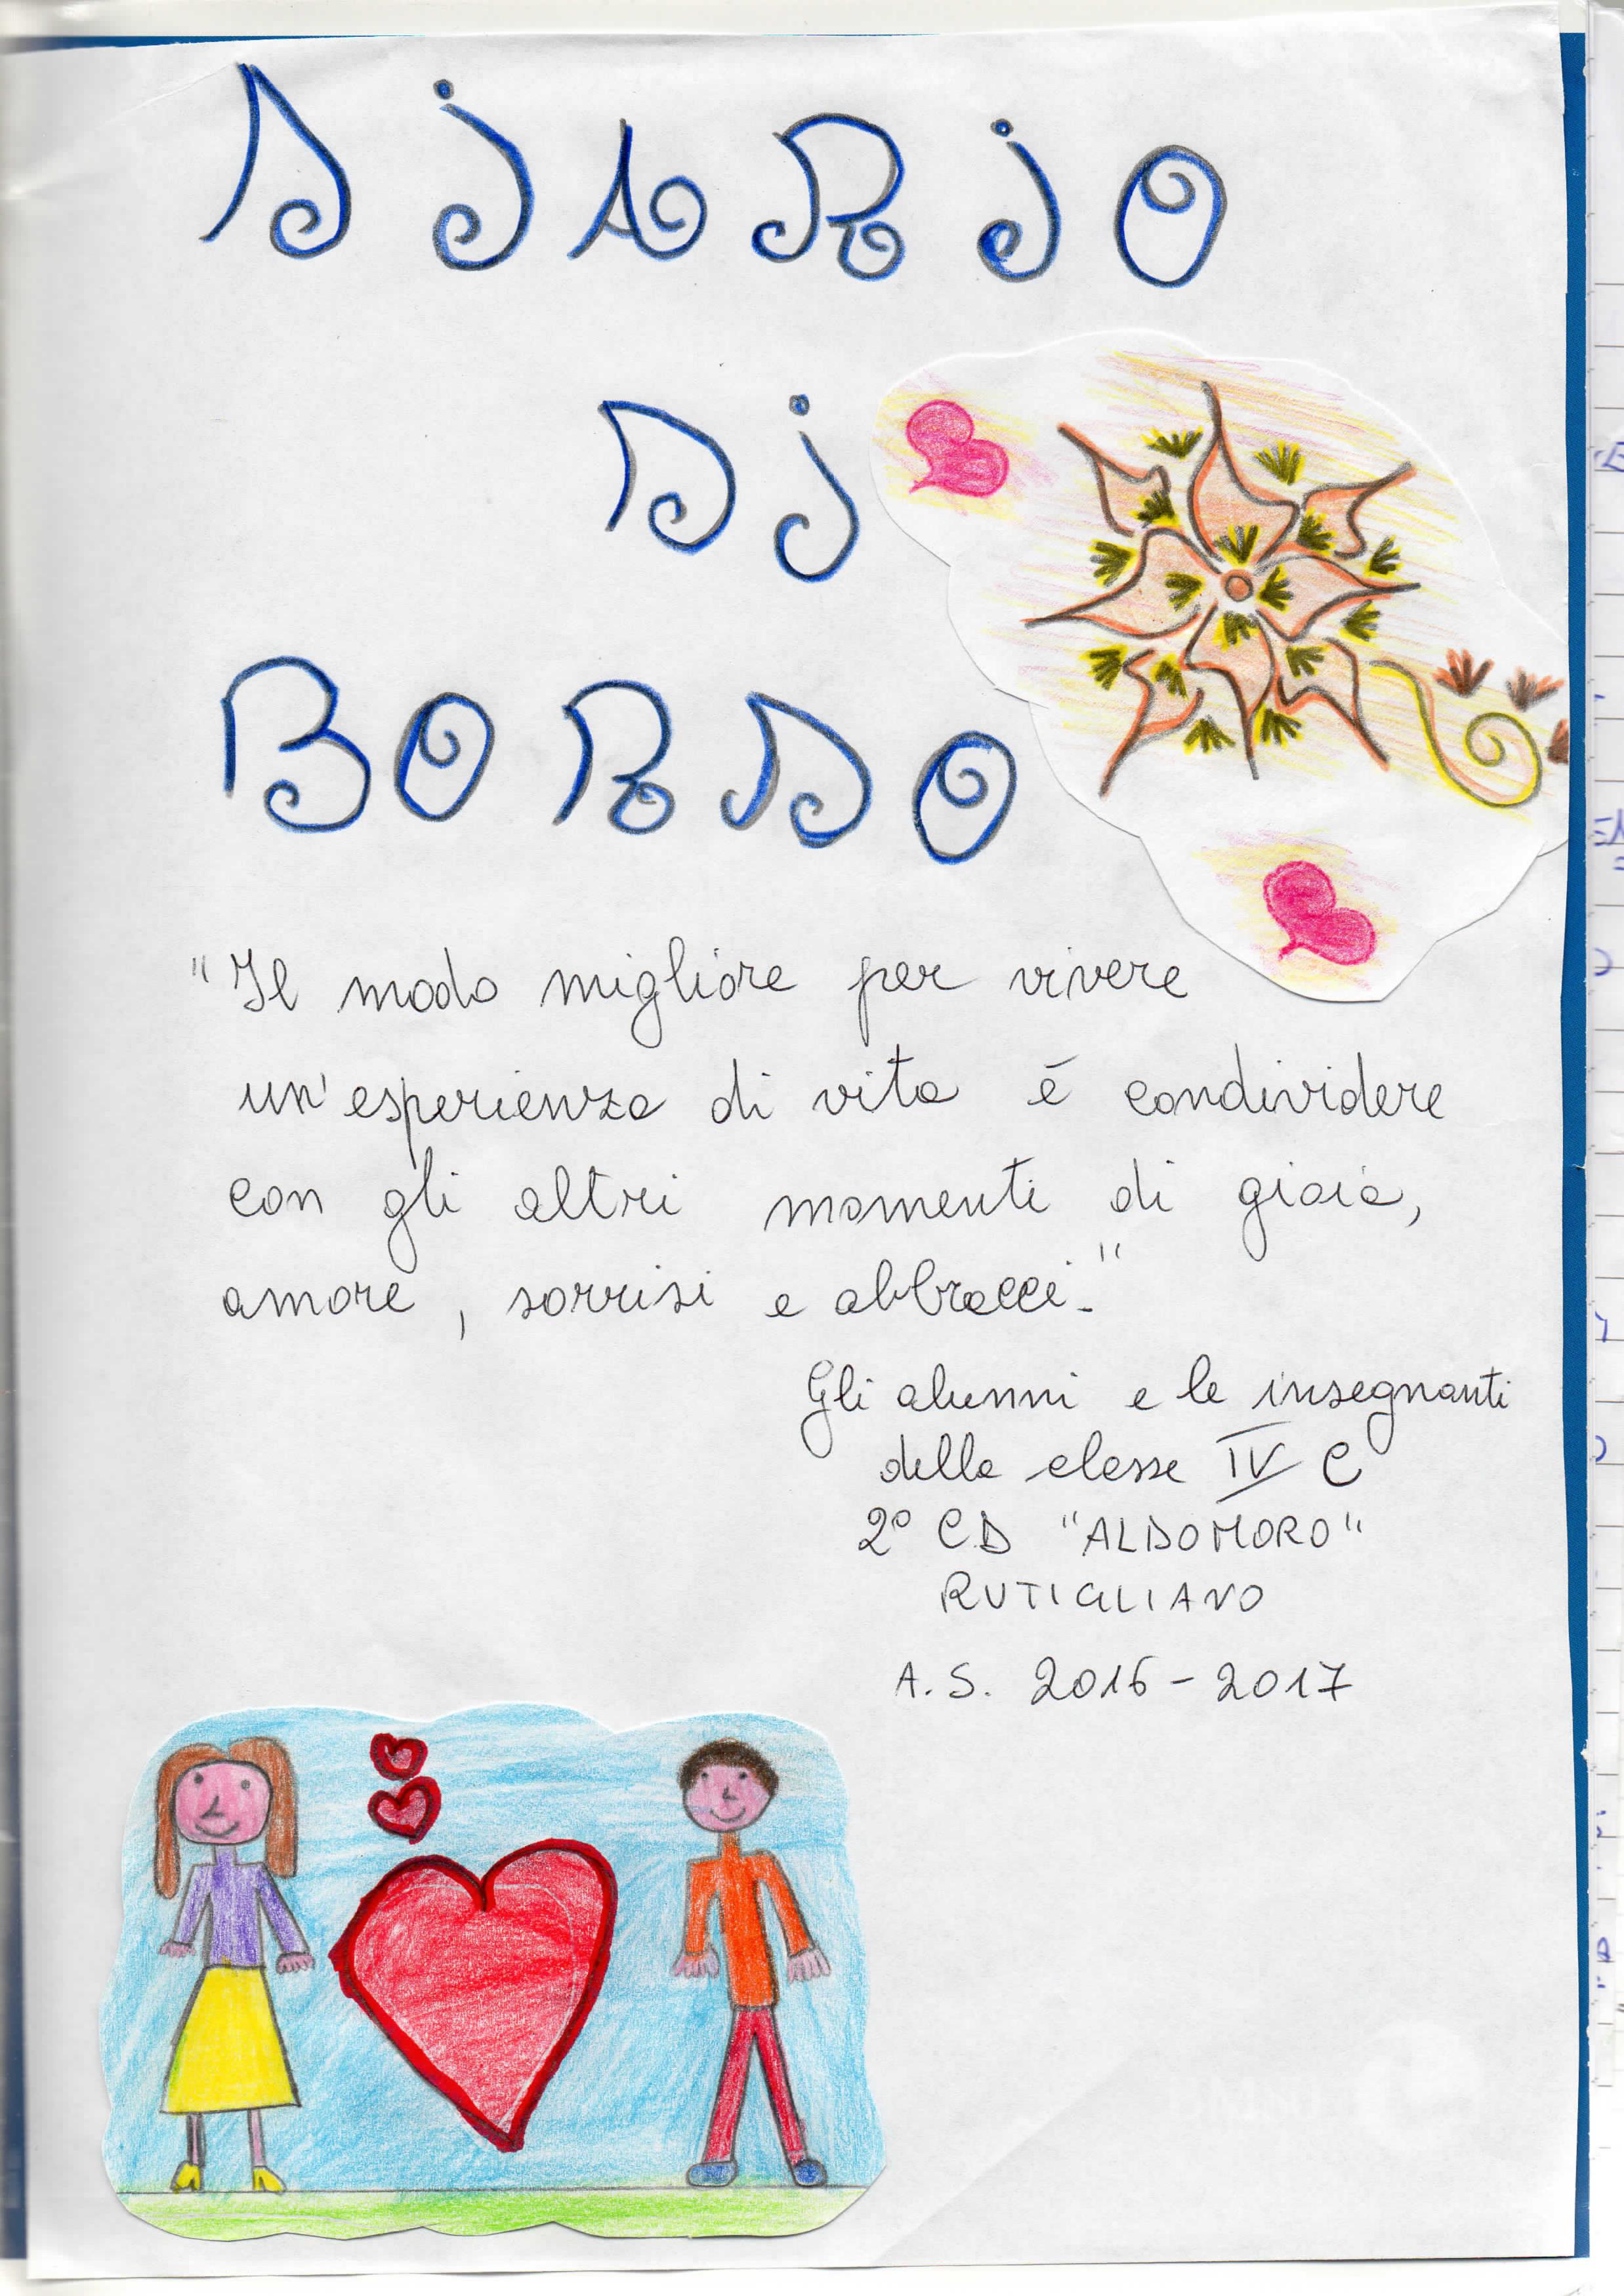 DiARiO
Di
BORDO
"Il modo migliore per vivere
un'esperienza di vita è condividere
con gli altri momenti di gioia,
amore, sorrisi e abbracci."
Gli alunni e le insegnanti
della classe IV C
2° CD "ALDO MORO"
RUTIGLIANO
A.S. 2016-2017